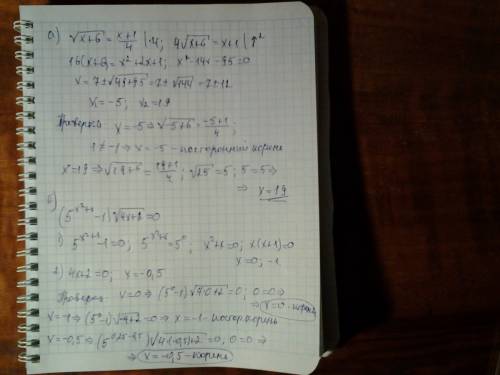 а) √x+6 = x+1/4 |·4; 4√x+6 = x+1 |↑²
16(x+6) = x²+2x+1; x²-14x-95=0
x=7±√49+95 = 7±√144 = 7±12
x₁=-5; x₂=19
Проверка: x=-5 ⇒ √-5+6 = -5+1/4;
1≠-1 ⇒ x=-5 - посторонний корень
x=19 ⇒ √19+6 = 19+1/4; √25=5; 5=5 ⇒
⇒ x=19
б) (5^(x²+x)-1)√4x+2=0
1) 5^(x²+x)-1=0; 5^(x²+x)=5⁰; x²+x=0; x(x+1)=0
x=0; -1
2) 4x+2=0; x=-0,5
Проверка: x=0 ⇒ (5⁰-1)√4·0+2=0; 0=0 ⇒
⇒ x=0 - корень
x=-1 ⇒ (5⁰-1)√-4+2=0 ⇒ x=-1 - постор. корень
x=-0,5 ⇒ (5^(0,25-0,5)-1)√4·(-0,5)+2=0; 0=0 ⇒
⇒ x=-0,5 - корень